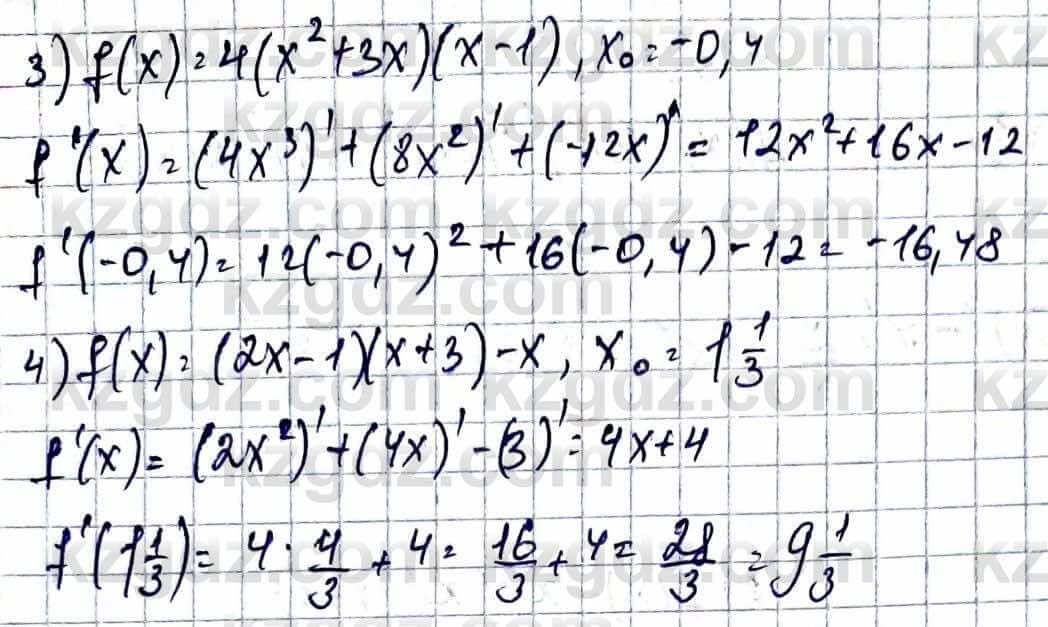 3) f(x)=4(x²+3x)(x-1), x₀=-0,4
f'(x)=(4x³)'+(8x²)'+(-12x)'=12x²+16x-12
f'(-0,4)=12(-0,4)²+16(-0,4)-12=-16,48
4) f(x)=(2x-1)(x+3)-x, x₀=1 1/3
f'(x)=(2x²)'+(4x)'-(3)'=4x+4
f'(1 1/3)=4·4/3+4=16/3+4=28/3=9 1/3
kzgdz.com